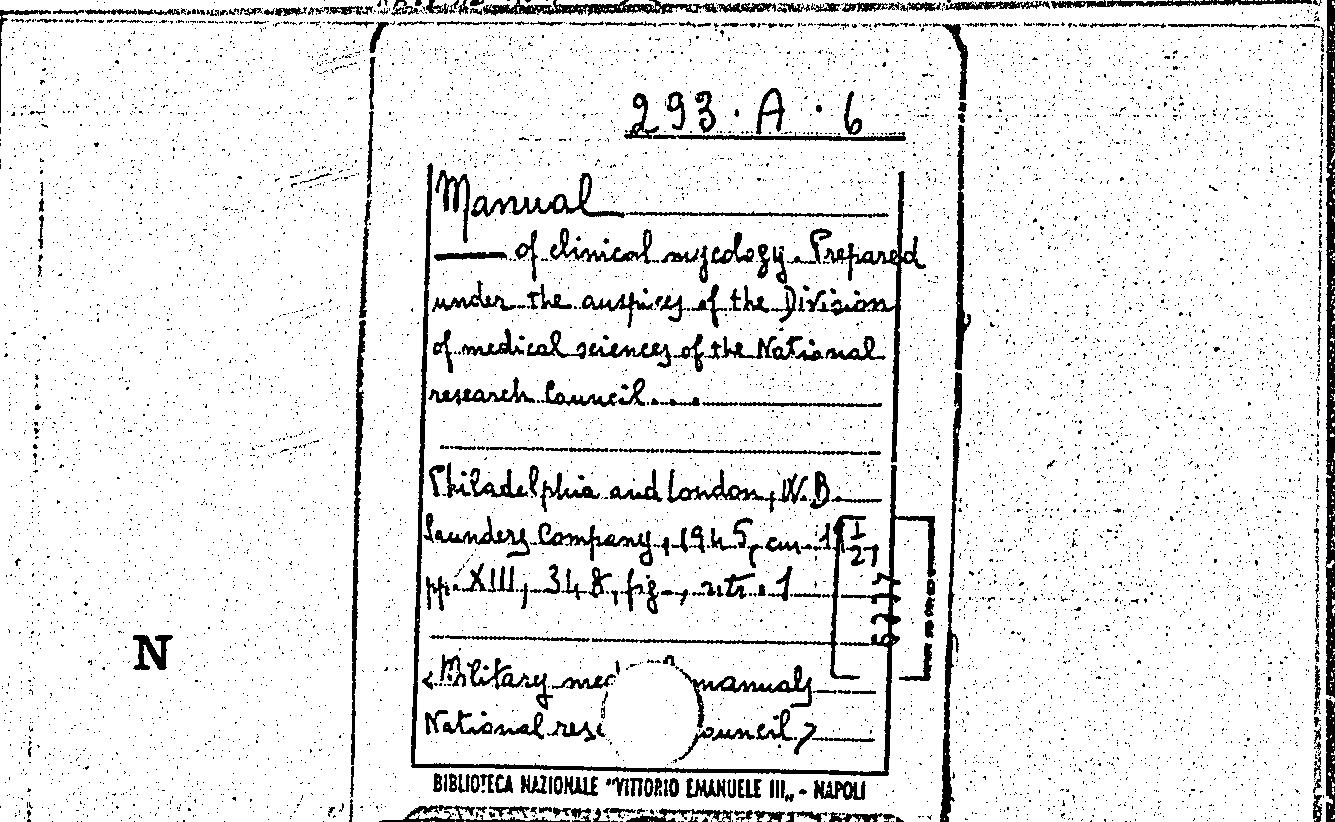 293 · A · 6
Manual
— of clinical mycology. Prepared
under the auspices of the Division
of medical sciences of the National
research Council...
Philadelphia and London, W. B.
Saunders Company, 1945, cm.
pp. XIII, 348, fig., 1
<Military manuals
National ouncil>
N
BIBLIOTECA NAZIONALE "VITTORIO EMANUELE III„ - NAPOLI